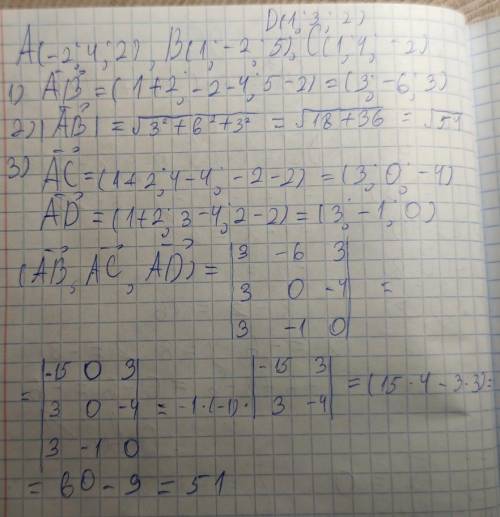 D(1; 3; 2)
A(-2; 4; 2), B(1; -2; 5), C(1; 4; -2)
1) AB = (1+2; -2-4; 5-2) = (3; -6; 3)
2) |AB| = √3²+6²+3² = √18+36 = √54
3) AC = (1+2; 4-4; -2-2) = (3; 0; -4)
AD = (1+2; 3-4; 2-2) = (3; -1; 0)
(AB, AC, AD) = | 3 -6 3 |
| 3 0 -4 | =
| 3 -1 0 |
= | -15 0 3 |
| 3 0 -4 | = -1·(-1)· | -15 3 |
| 3 -4 | = (15·4 - 3·3) =
| 3 -1 0 |
= 60 - 9 = 51